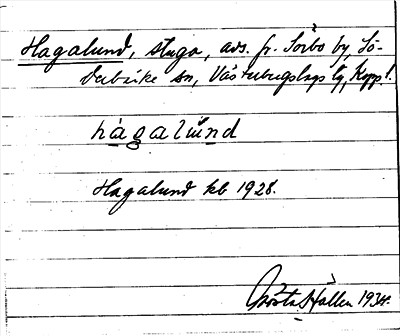 Hagalund, stuga, avs. fr. Sörbo by, Sö-
derbärke sn, Västerbergslags tg, Kopp.l.
hagalund
Hagalund kb 1928.
Gösta Hallen 1934.